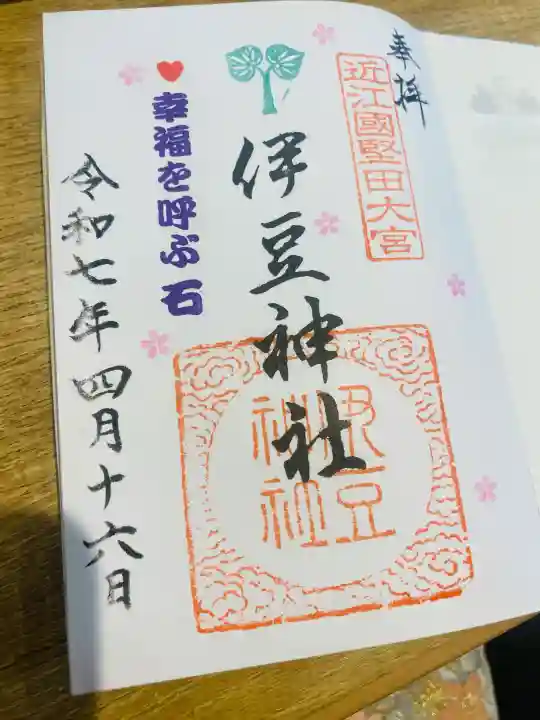 奉拝
近江國堅田大宮
伊豆神社
伊豆
神社
幸福を呼ぶ石
令和七年四月十六日